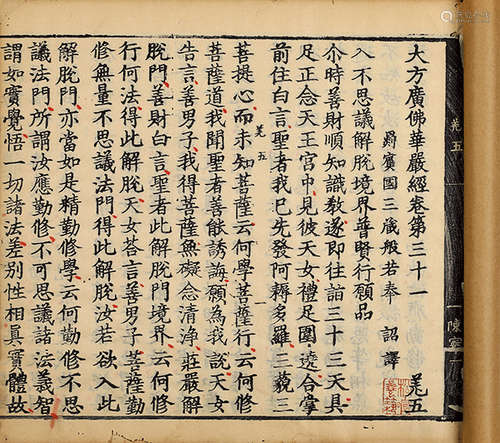 大方廣佛華嚴經卷第三十一 羗五
罽賓國三藏般若奉 詔譯
入不思議解脫境界普賢行願品
尒時善財順知識教遂即往詣三十三天具
足正念天王宮中見彼天女禮足圍遶合掌
前住白言聖者我已先發阿耨多羅三藐三
菩提心而未知菩薩云何學菩薩行云何修
菩薩道我聞聖者善能誘誨願為我說天女
告言善男子我得菩薩無礙念清淨莊嚴解
脫門善財白言聖者此解脫門境界云何修
行何法得此解脫天女荅言善男子菩薩勤
修無量不思議法門得此解脫汝若欲入此
解脫門亦當如是精勤修學云何勤修不思
議法門所謂汝應勤修不可思議諸法義智
謂如實覺悟一切諸法差別性相真實體故
羗五
一
羗五
一
陳寔